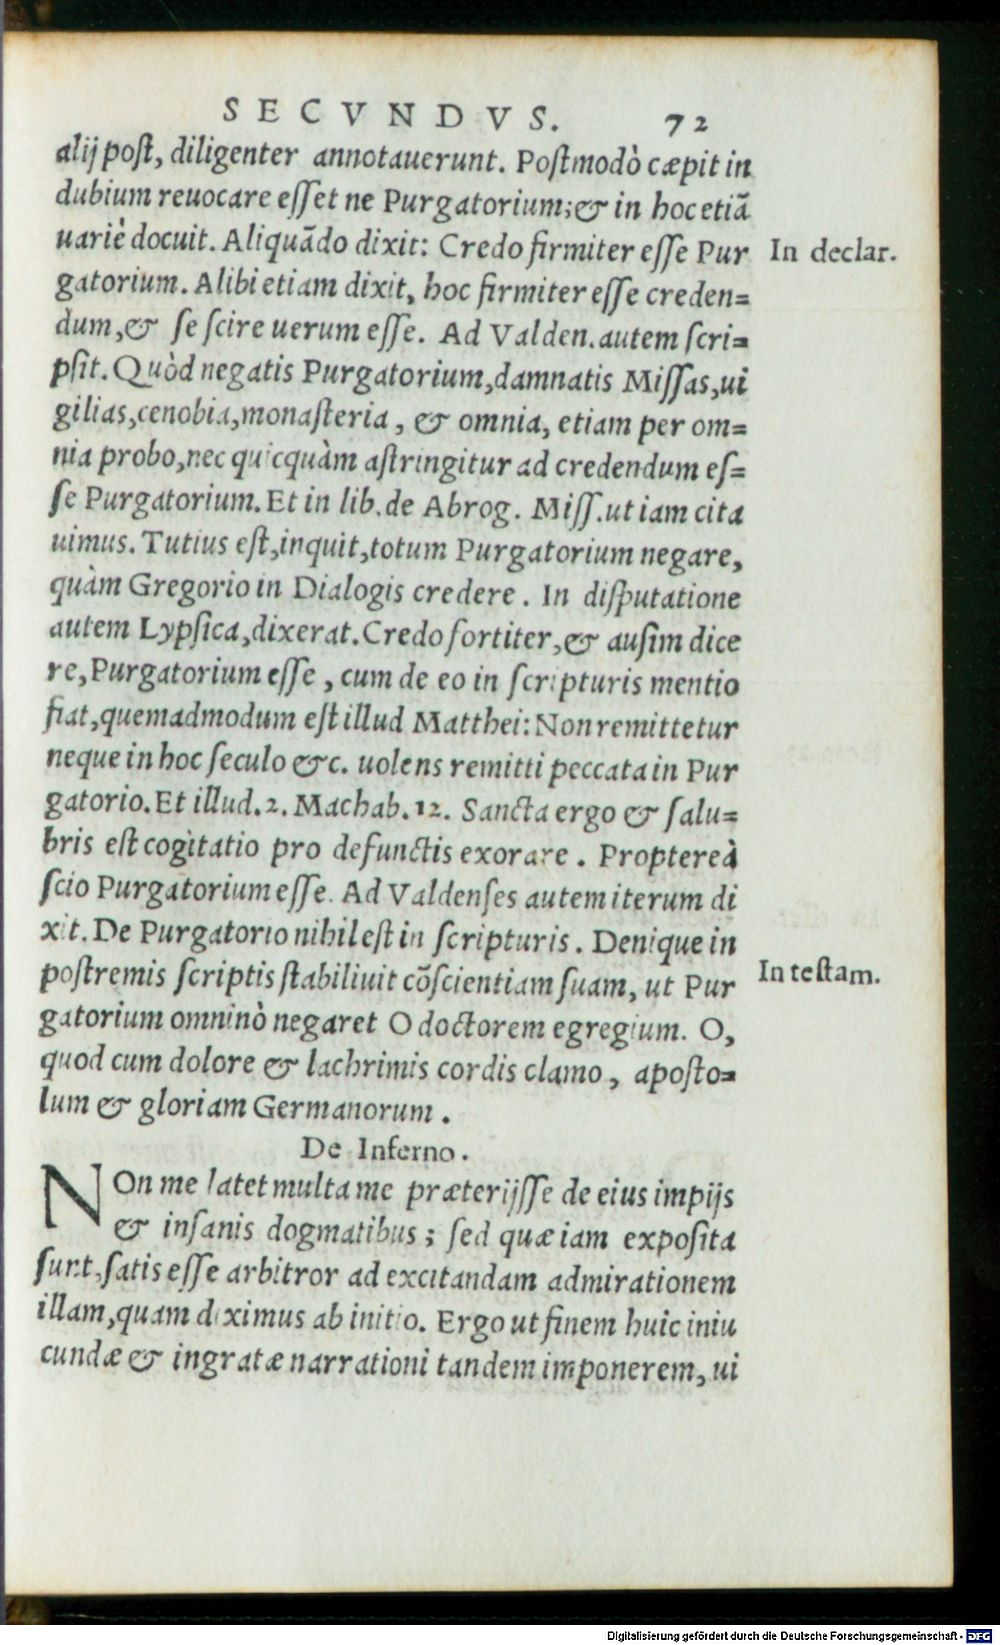 SECVNDVS. 72
alij post, diligenter annotauerunt. Postmodò cæpit in
dubium reuocare esset ne Purgatorium; & in hoc etiã
uariè docuit. Aliquãdo dixit: Credo firmiter esse Pur
In declar.
gatorium. Alibi etiam dixit, hoc firmiter esse creden=
dum, & se scire uerum esse. Ad Valden. autem scri=
psit. Quòd negatis Purgatorium, damnatis Missas, ui
gilias, cenobia, monasteria, & omnia, etiam per om=
nia probo, nec quicquàm astringitur ad credendum es=
se Purgatorium. Et in lib. de Abrog. Miss. ut iam cita
uimus. Tutius est, inquit, totum Purgatorium negare,
quàm Gregorio in Dialogis credere. In disputatione
autem Lypsica, dixerat. Credo fortiter, & ausim dice
re, Purgatorium esse, cum de eo in scripturis mentio
fiat, quemadmodum est illud Matthei: Non remittetur
neque in hoc seculo &c. uolens remitti peccata in Pur
gatorio. Et illud. 2. Machab. 12. Sancta ergo & salu=
bris est cogitatio pro defunctis exorare. Proptereà
scio Purgatorium esse. Ad Valdenses autem iterum di
xit. De Purgatorio nihil est in scripturis. Denique in
postremis scriptis stabiliuit cõscientiam suam, ut Pur
In testam.
gatorium omninò negaret O doctorem egregium. O,
quod cum dolore & lachrimis cordis clamo, aposto=
lum & gloriam Germanorum.
De Inferno.
NOn me latet multa me præterijsse de eius impijs
& insanis dogmatibus; sed quæ iam exposita
sunt, satis esse arbitror ad excitandam admirationem
illam, quam diximus ab initio. Ergo ut finem huic iniu
cundæ & ingratæ narrationi tandem imponerem, ui
Digitalisierung gefördert durch die Deutsche Forschungsgemeinschaft - DFG